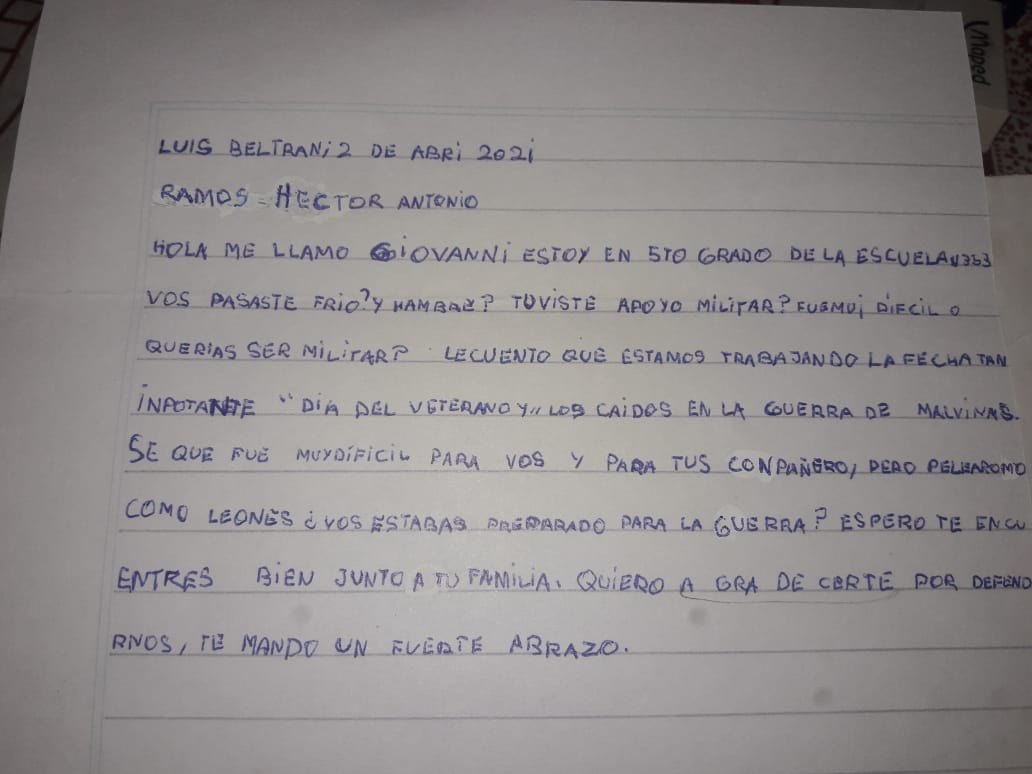 Maped
LUIS BELTRANI 2 DE ABRI 2021
RAMOS = HECTOR ANTONIO
HOLA ME LLAMO GIOVANNI ESTOY EN 5TO GRADO DE LA ESCUELA
VOS PASASTE FRIO? Y HAMBRE? TUVISTE APOYO MILITAR? FUE MUI DIFCIL O
QUERIAS SER MILITAR? LE CUENTO QUE ESTAMOS TRABAJANDO LA FECHA TAN
INPOTANTE "DIA DEL VETERANO Y" LOS CAIDOS EN LA GUERRA DE MALVINAS.
SE QUE FUE MUY DIFICIL PARA VOS Y PARA TUS CONPAÑERO, PERO PELEAROMO
COMO LEONES ¿VOS ESTABAS PREPARADO PARA LA GUERRA? ESPERO TE ENCU
ENTRES BIEN JUNTO A TU FAMILIA. QUIERO A GRA DE CERTE POR DEFEND
RNOS, TE MANDO UN FUERTE ABRAZO.